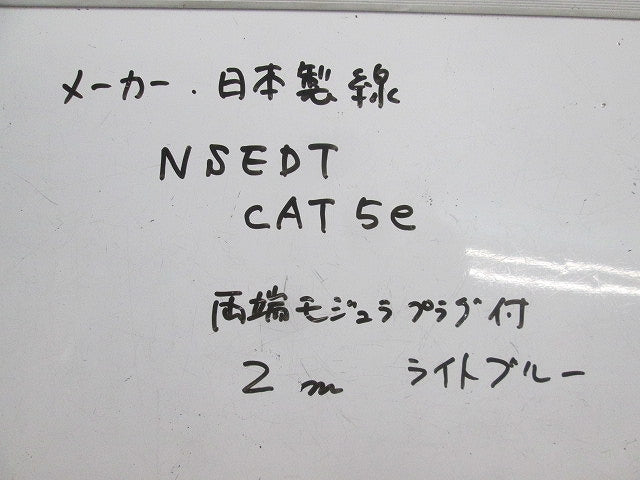 メーカー．日本製線
NSEDT
CAT5e
両端モジュラプラグ付
2m ライトブルー